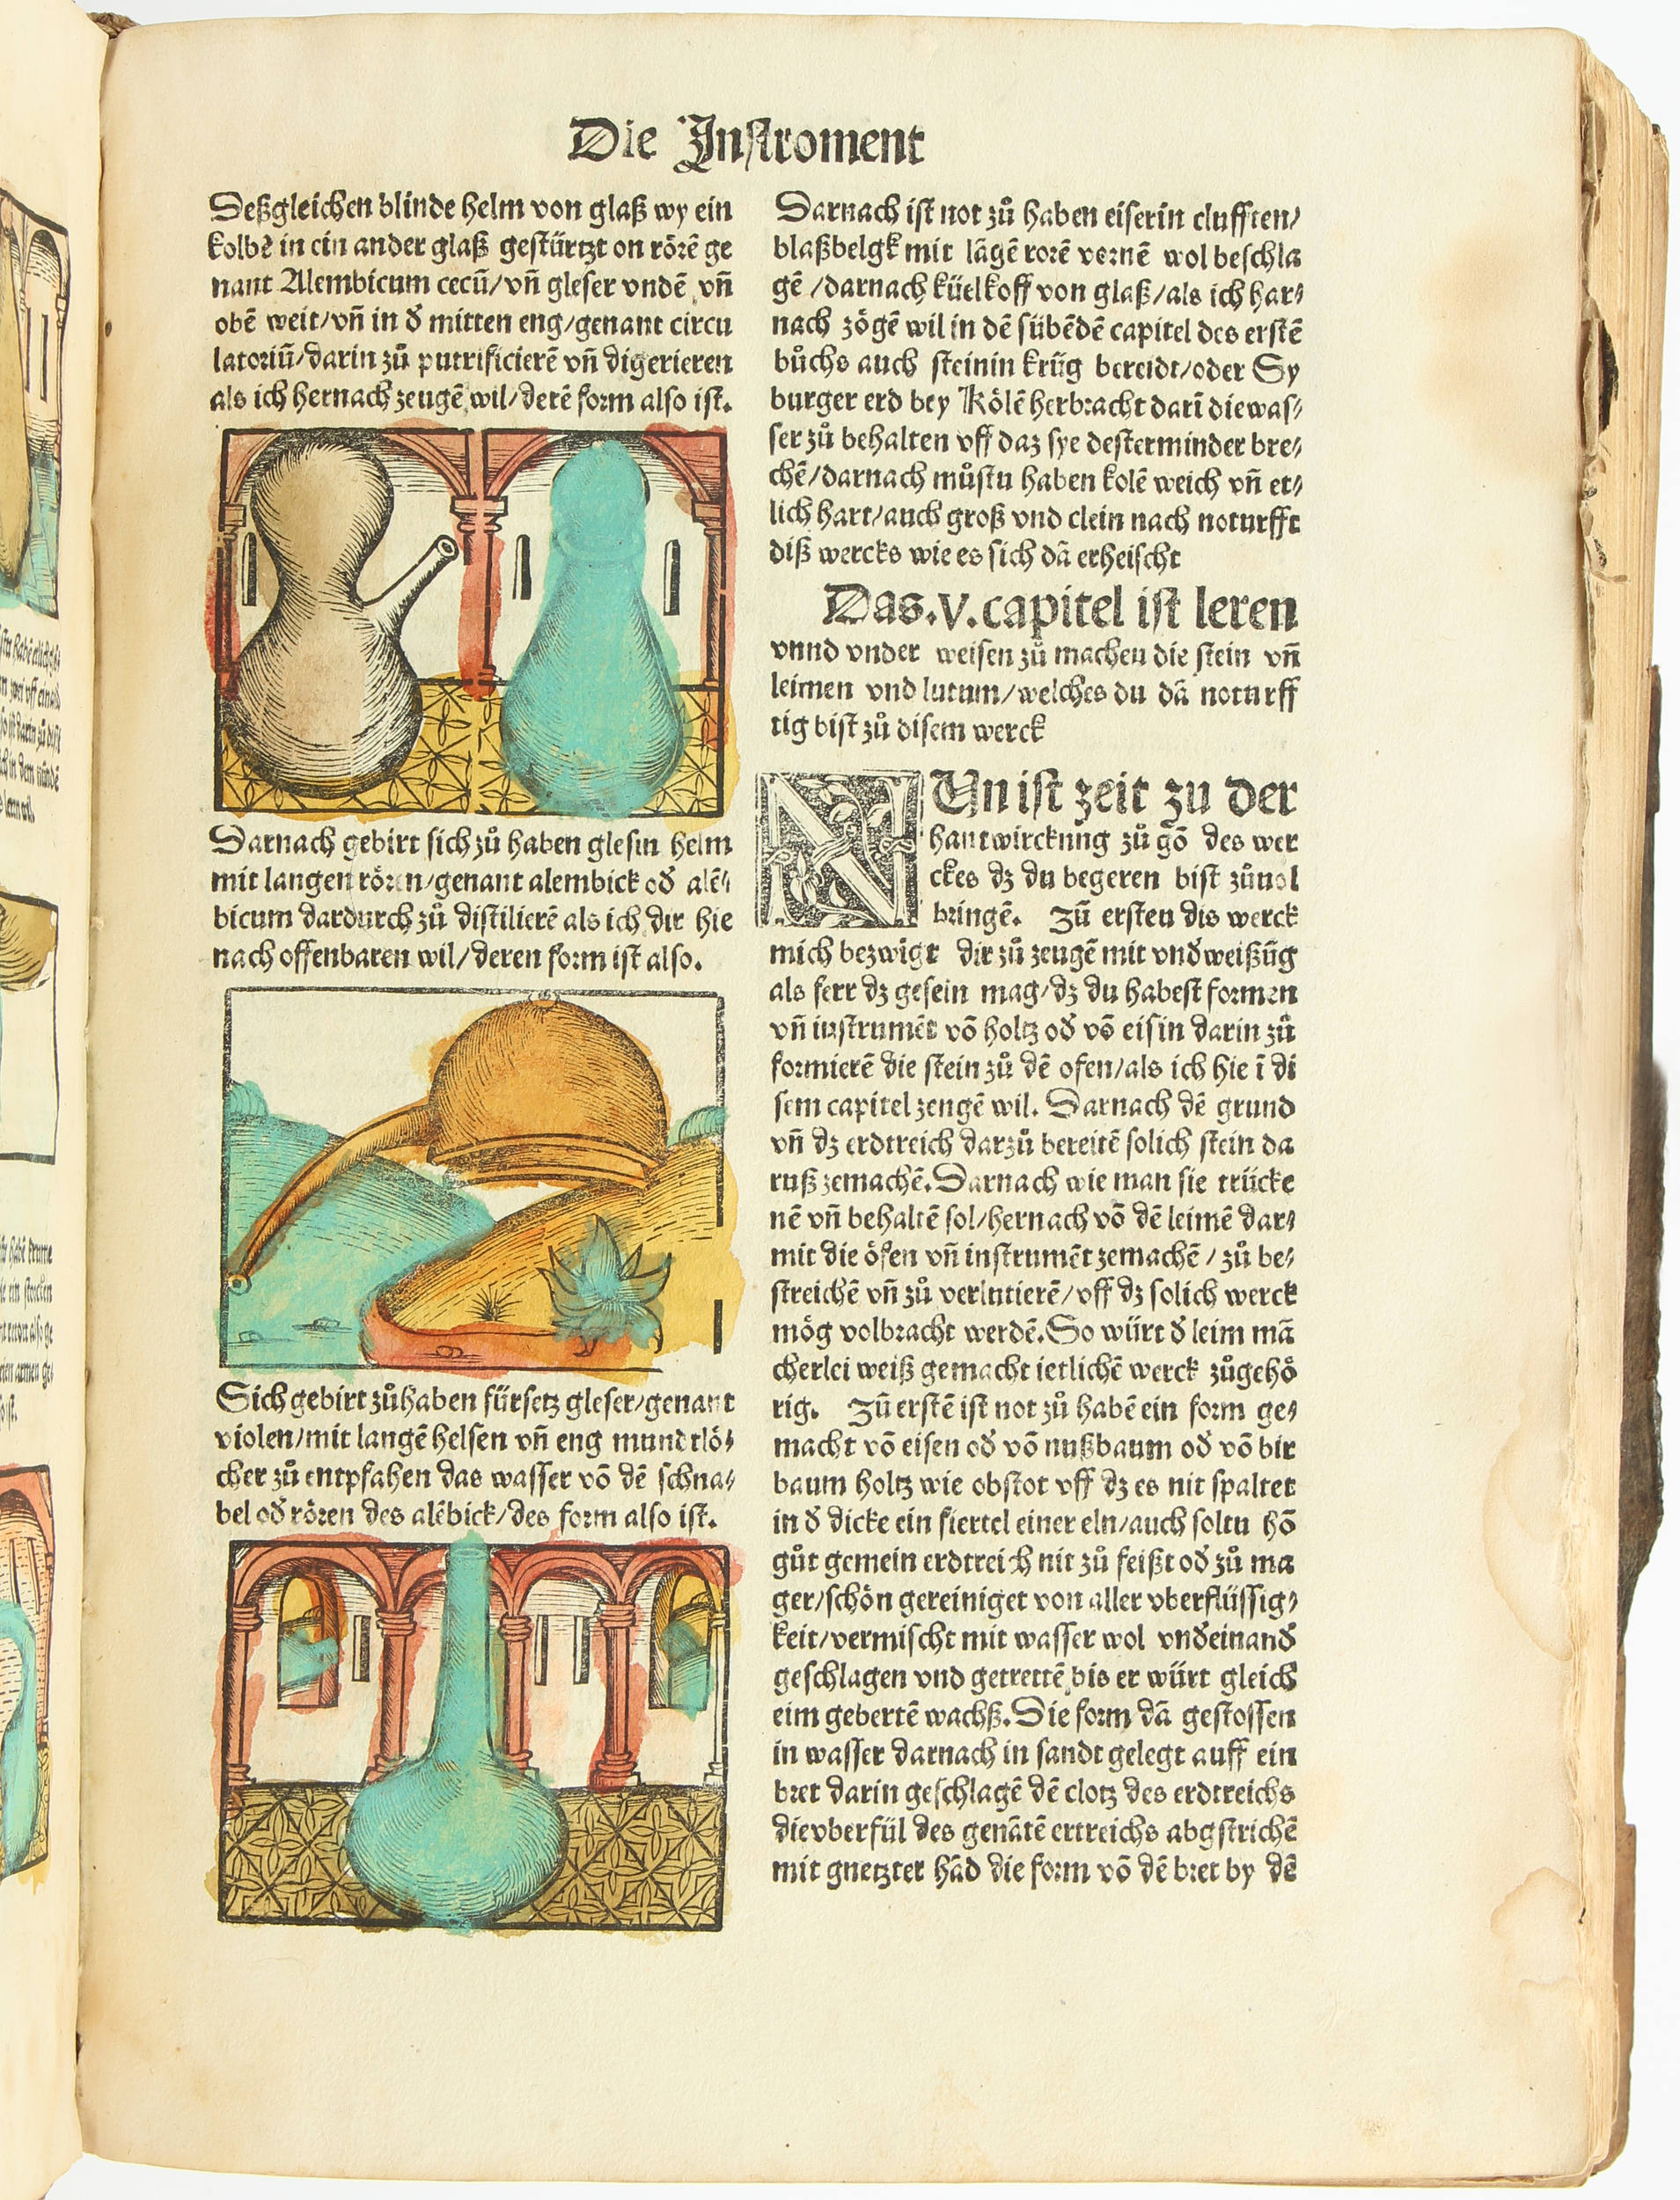 Die Instroment
Deßgleichen blinde helm von glaß wy ein
kolbē in ein ander glaß gestürtzt on rörē ge
nant Alembicum cecū/vñ gleser vndē vñ
obē weit/vñ in đ mitten eng/genant circu
latoriū/darin zů putrificierē vñ digerieren
als ich hernach zeugē wil/derē form also ist.
Darnach gebirt sich zů haben glesin helm
mit langen rören/genant alembick ođ alē⸗
bicum dardurch zů distilierē als ich dir hie
nach offenbaren wil/deren form ist also.
Sich gebirt zůhaben fürsetz gleser/genant
violen/mit langē helsen vñ eng mundtlö⸗
cher zů entpfahen das wasser vō dē schna⸗
bel ođ rören des alēbick/des form also ist.
Darnach ist not zů haben eiserin clufften/
blaßbelgk mit lāgē rorē vornē wol beschla
gē/darnach küelkoff von glaß/als ich har⸗
nach zögē wil in dē sübēdē capitel des erstē
bůchs auch steinin krüg bereidt/oder Sy
burger erd bey Kölē herbracht darī die was⸗
ser zů behalten vff daz sye desterminder bre⸗
chē/darnach můstu haben kolē weich vñ et⸗
lich hart/auch groß vnd clein nach noturfft
diß wercks wie es sich dā erheischt
Das.v.capitel ist leren
vnnd vnder weisen zů machen die stein vñ
leimen vnd lutum/welches du dā noturff
tig bist zů disem werck
NUn ist zeit zu der
hantwirckung zů gō des wer
ckes dz du begeren bist zůuol
bringē. Zū ersten dis werck
mich bezwīgt dir zů zeugē mit vnđweißūg
als ferr dz gesein mag/dz du habest formen
vñ instrumēt vō holtz ođ vō eisin darin zů
formierē die stein zů dē ofen/als ich hie ī di
sem capitel zeugē wil. Darnach dē grund
vñ dz erdtreich darzů bereitē solich stein da
ruß zemachē. Darnach wie man sie trücke
nē vñ behaltē sol/hernach vō dē leimē dar⸗
mit die öfen vñ instrumēt zemachē/zů be⸗
streichē vñ zů verlutierē/vff dz solich werck
mög volbracht werdē. So würt đ leim mā
cherlei weiß gemacht ietlichē werck zůgehö
rig. Zū erstē ist not zů habē ein form ge⸗
macht vō eisen ođ vō nußbaum ođ vō bir
baum holtz wie obstot vff dz es nit spaltet
in đ dicke ein fiertel einer eln/auch soltu hō
gůt gemein erdtreich nit zů feißt ođ zů ma
ger/schön gereiniget von aller vberflüssig⸗
keit/vermischt mit wasser wol vnđeinanđ
geschlagen vnd getrettē bis er würt gleich
eim gebertē wachß. Die form dā gestossen
in wasser darnach in sandt gelegt auff ein
bret darin geschlagē dē clotz des erdtreichs
die vberfül des genātē ertreichs abgstrichē
mit gnetzter hād die form vō dē bret by dē